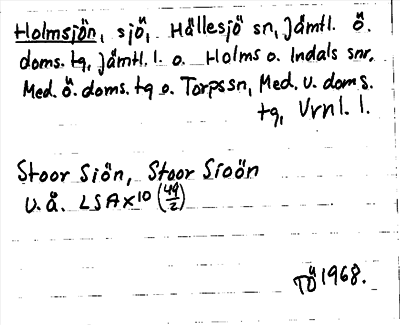 Holmsjön, sjö, Hällesjö sn, Jämtl. ö.
doms. tg, Jämtl. l. o. Holms o. Indals snr,
Med. ö. doms. tg o. Torps sn, Med. v. doms.
tg, Vrnl. l.
Stoor Siön, Stoor Sioön
U.å. LSA X10 (49/2)
TÖ 1968.